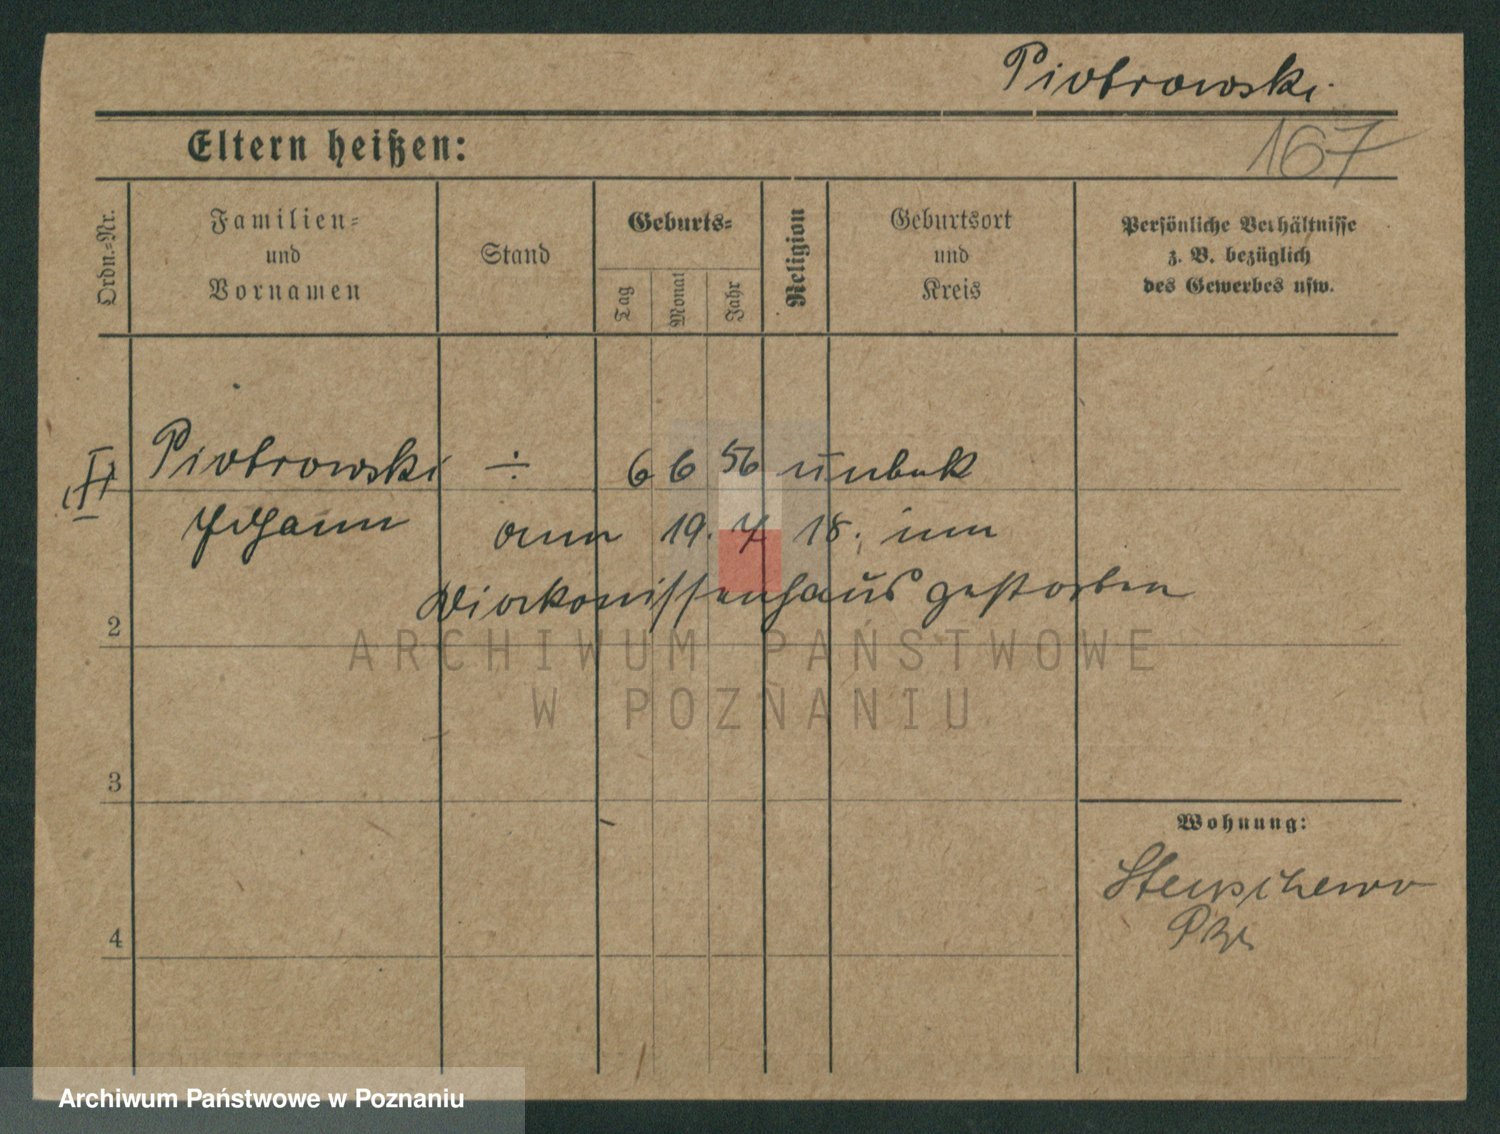 Piotrowski.
167
Eltern heißen:
Ordn.=Nr.
Familien=
und
Vornamen
Stand
Geburts=
Tag
Monat
Jahr
Religion
Geburtsort
und
Kreis
Persönliche Verhältnisse
z. B. bezüglich
des Gewerbes usw.
Piotrowski ÷ 6 6 56 unbek
Johann am 19. 7 18., im
Diakonissenhaus gestorben
2
ARCHIWUM PAŃSTWOWE
W POZNANIU
3
Wohnung:
4
Archiwum Państwowe w Poznaniu